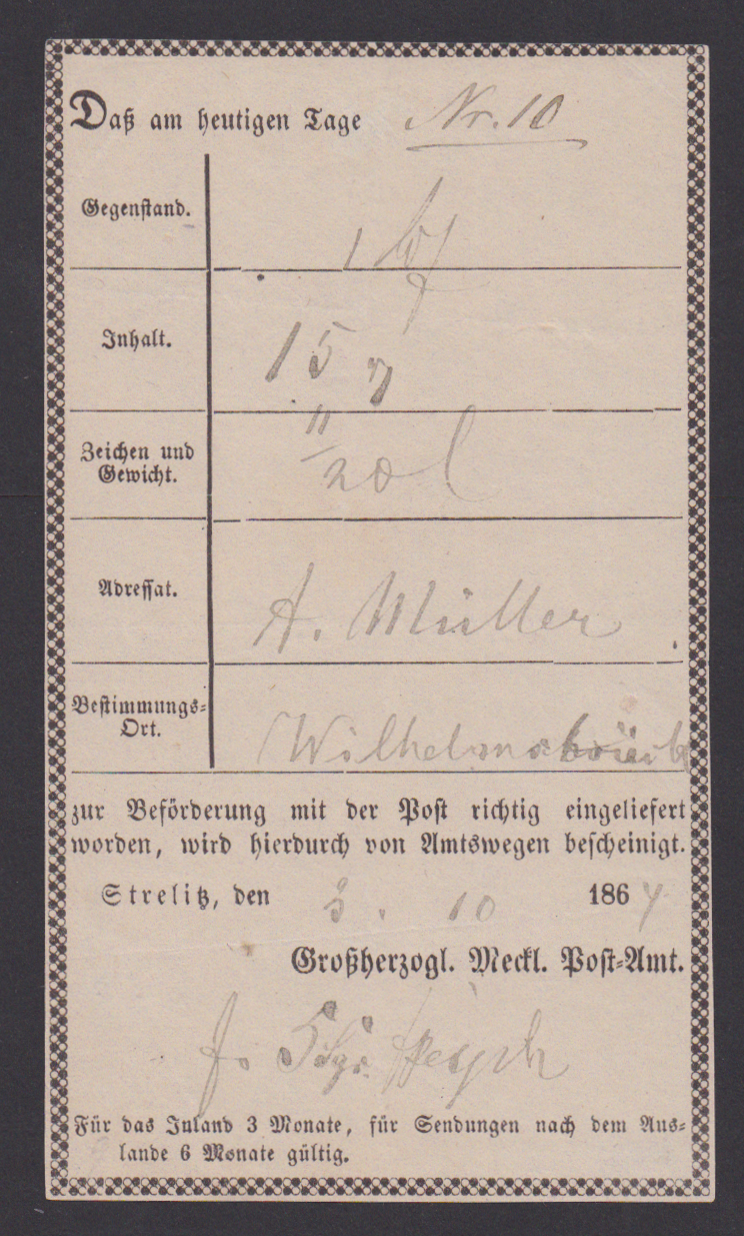 Daß am heutigen Tage Nr. 10
Gegenstand. 1
Inhalt. 15
Zeichen und
Gewicht.
Adressat. A. Müller
Bestimmungs-
Ort.
zur Beförderung mit der Post richtig eingeliefert
worden, wird hierdurch von Amtswegen bescheinigt.
Strelitz, den 3. 10 1864
Großherzogl. Meckl. Post-Amt.
Für das Inland 3 Monate, für Sendungen nach dem Aus-
lande 6 Monate gültig.